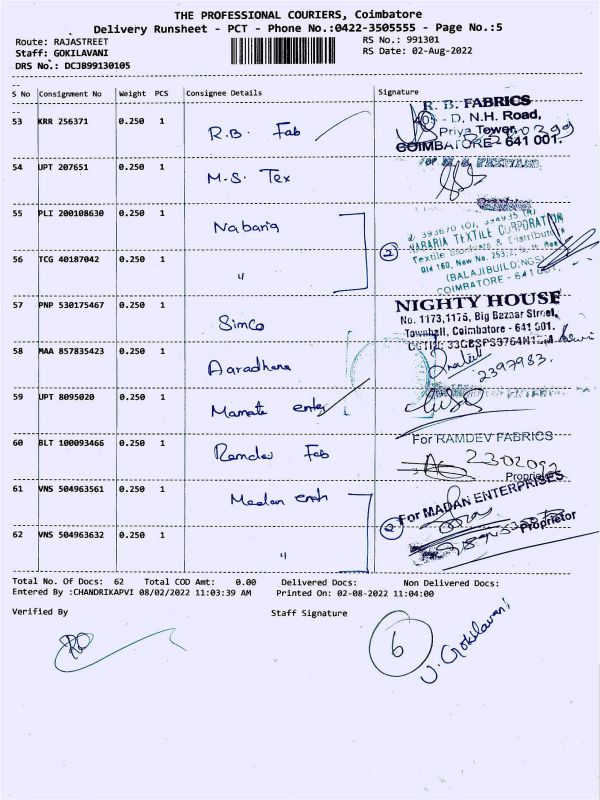 THE PROFESSIONAL COURIERS, Coimbatore
Delivery Runsheet - PCT - Phone No.:0422-3505555 - Page No.:5
Route: RAJASTREET
Staff: GOKILAVANI
DRS No.: DCJB99130105
RS No.: 991301
RS Date: 02-Aug-2022
S No Consignment No Weight PCS Consignee Details Signature
53 KRR 256371 0.250 1 R.B. Fab
R. B. FABRICS
D, N.H. Road,
Priya Tower,
COIMBATORE - 641 001.
54 UPT 207651 0.250 1 M.S. Tex
55 PLI 200108630 0.250 1 Nabaria
NABARIA TEXTILE CORPORATION
Textile Stockists & Distributors
Old 160, New No. 253/2,
(BALAJI BUILDINGS)
COIMBATORE - 641 001.
2
56 TCG 40187042 0.250 1 "
57 PNP 530175467 0.250 1 Simco
NIGHTY HOUSE
No. 1173,1175, Big Bazaar Street,
Townhall, Coimbatore - 641 001.
58 MAA 857835423 0.250 1 Aaradhana
2397983.
59 UPT 8095020 0.250 1 Mamata
60 BLT 100093466 0.250 1 Ramdev Fab
For RAMDEV FABRICS
2302092
Proprietor
61 VNS 504963561 0.250 1 Madan
For MADAN ENTERPRISES
Proprietor
2
62 VNS 504963632 0.250 1 "
Total No. Of Docs: 62 Total COD Amt: 0.00 Delivered Docs: Non Delivered Docs:
Entered By :CHANDRIKAPVI 08/02/2022 11:03:39 AM Printed On: 02-08-2022 11:04:00
Verified By Staff Signature
6
J. Gokilavani